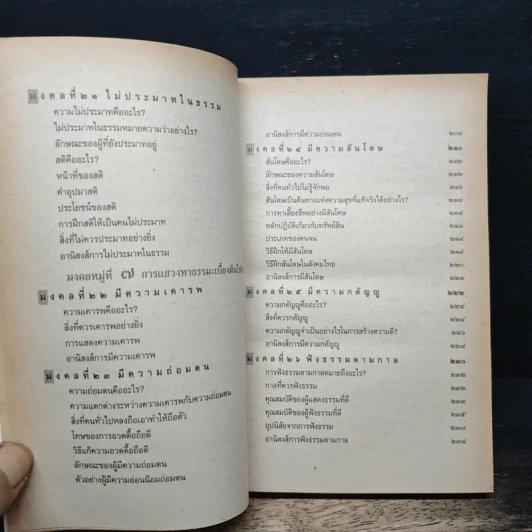 มงคลที่ ๒๑ ไม่ประมาทในธรรม
ความไม่ประมาทคืออะไร?
ไม่ประมาทในธรรมหมายความว่าอย่างไร?
ลักษณะของผู้ที่ยังประมาทอยู่
สติคืออะไร?
หน้าที่ของสติ
คำอุปมาสติ
ประโยชน์ของสติ
การฝึกสติให้เป็นคนไม่ประมาท
สิ่งที่ไม่ควรประมาทอย่างยิ่ง
อานิสงส์การไม่ประมาทในธรรม
มงคลหมู่ที่ ๗ การแสวงหาธรรมะเบื้องต้น
มงคลที่ ๒๒ มีความเคารพ
ความเคารพคืออะไร?
สิ่งที่ควรเคารพอย่างยิ่ง
การแสดงความเคารพ
อานิสงส์การมีความเคารพ
มงคลที่ ๒๓ มีความถ่อมตน
ความถ่อมตนคืออะไร?
ความแตกต่างระหว่างความเคารพกับความถ่อมตน
สิ่งที่คนทั่วไปหลงถือเอาทำให้ถือตัว
โทษของการอวดดื้อถือดี
วิธีแก้ความอวดดื้อถือดี
ลักษณะของผู้มีความถ่อมตน
ตัวอย่างผู้มีความอ่อนน้อมถ่อมตน
อานิสงส์การมีความถ่อมตน ๒๐๘
มงคลที่ ๒๔ มีความสันโดษ ๒๑๐
สันโดษคืออะไร? ๒๑๒
ลักษณะของความสันโดษ ๒๑๒
สิ่งที่คนทั่วไปไม่รู้จักพอ ๒๑๖
สันโดษเป็นต้นทางแห่งความสุขที่แท้จริงได้อย่างไร? ๒๑๗
การหาเลี้ยงชีพอย่างมีสันโดษ ๒๑๘
หลักปฏิบัติเกี่ยวกับทรัพย์สิน ๒๑๘
ประเภทของคนจน ๒๑๙
วิธีฝึกให้มีสันโดษ ๒๑๙
วิธีฝึกสันโดษในสังคมไทย ๒๒๐
อานิสงส์การมีสันโดษ ๒๒๑
มงคลที่ ๒๕ มีความกตัญญู ๒๒๒
ความกตัญญูคืออะไร? ๒๒๔
สิ่งที่ควรกตัญญู ๒๒๔
ความกตัญญูจำเป็นอย่างไรในการสร้างความดี? ๒๒๖
อานิสงส์การมีความกตัญญู ๒๒๘
มงคลที่ ๒๖ ฟังธรรมตามกาล ๒๓๐
การฟังธรรมตามกาลหมายถึงอะไร? ๒๓๒
กาลที่ควรฟังธรรม ๒๓๒
คุณสมบัติของผู้แสดงธรรมที่ดี ๒๓๓
คุณสมบัติของผู้ฟังธรรมที่ดี ๒๓๕
อุปนิสัยจากการฟังธรรม ๒๓๗
อานิสงส์การฟังธรรมตามกาล ๒๓๘